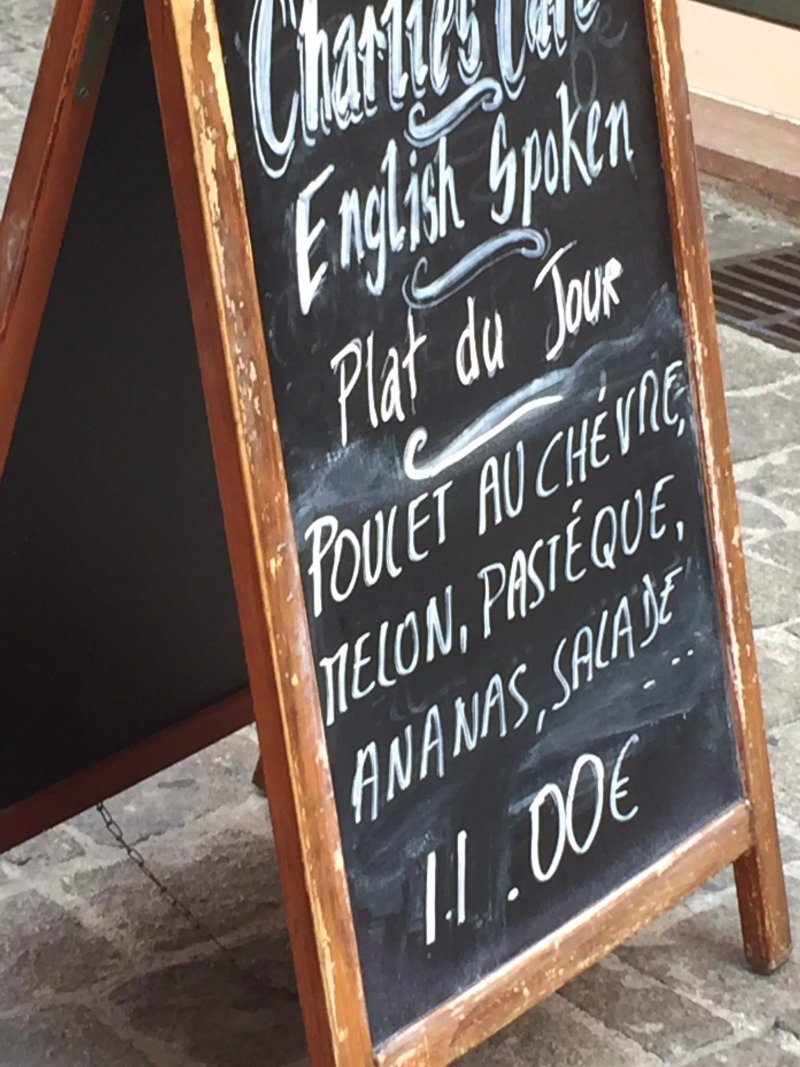 Charlie's Café
English Spoken
Plat du Jour
POULET AU CHÉVRE,
MELON, PASTÉQUE,
ANANAS, SALADE...
11.00€